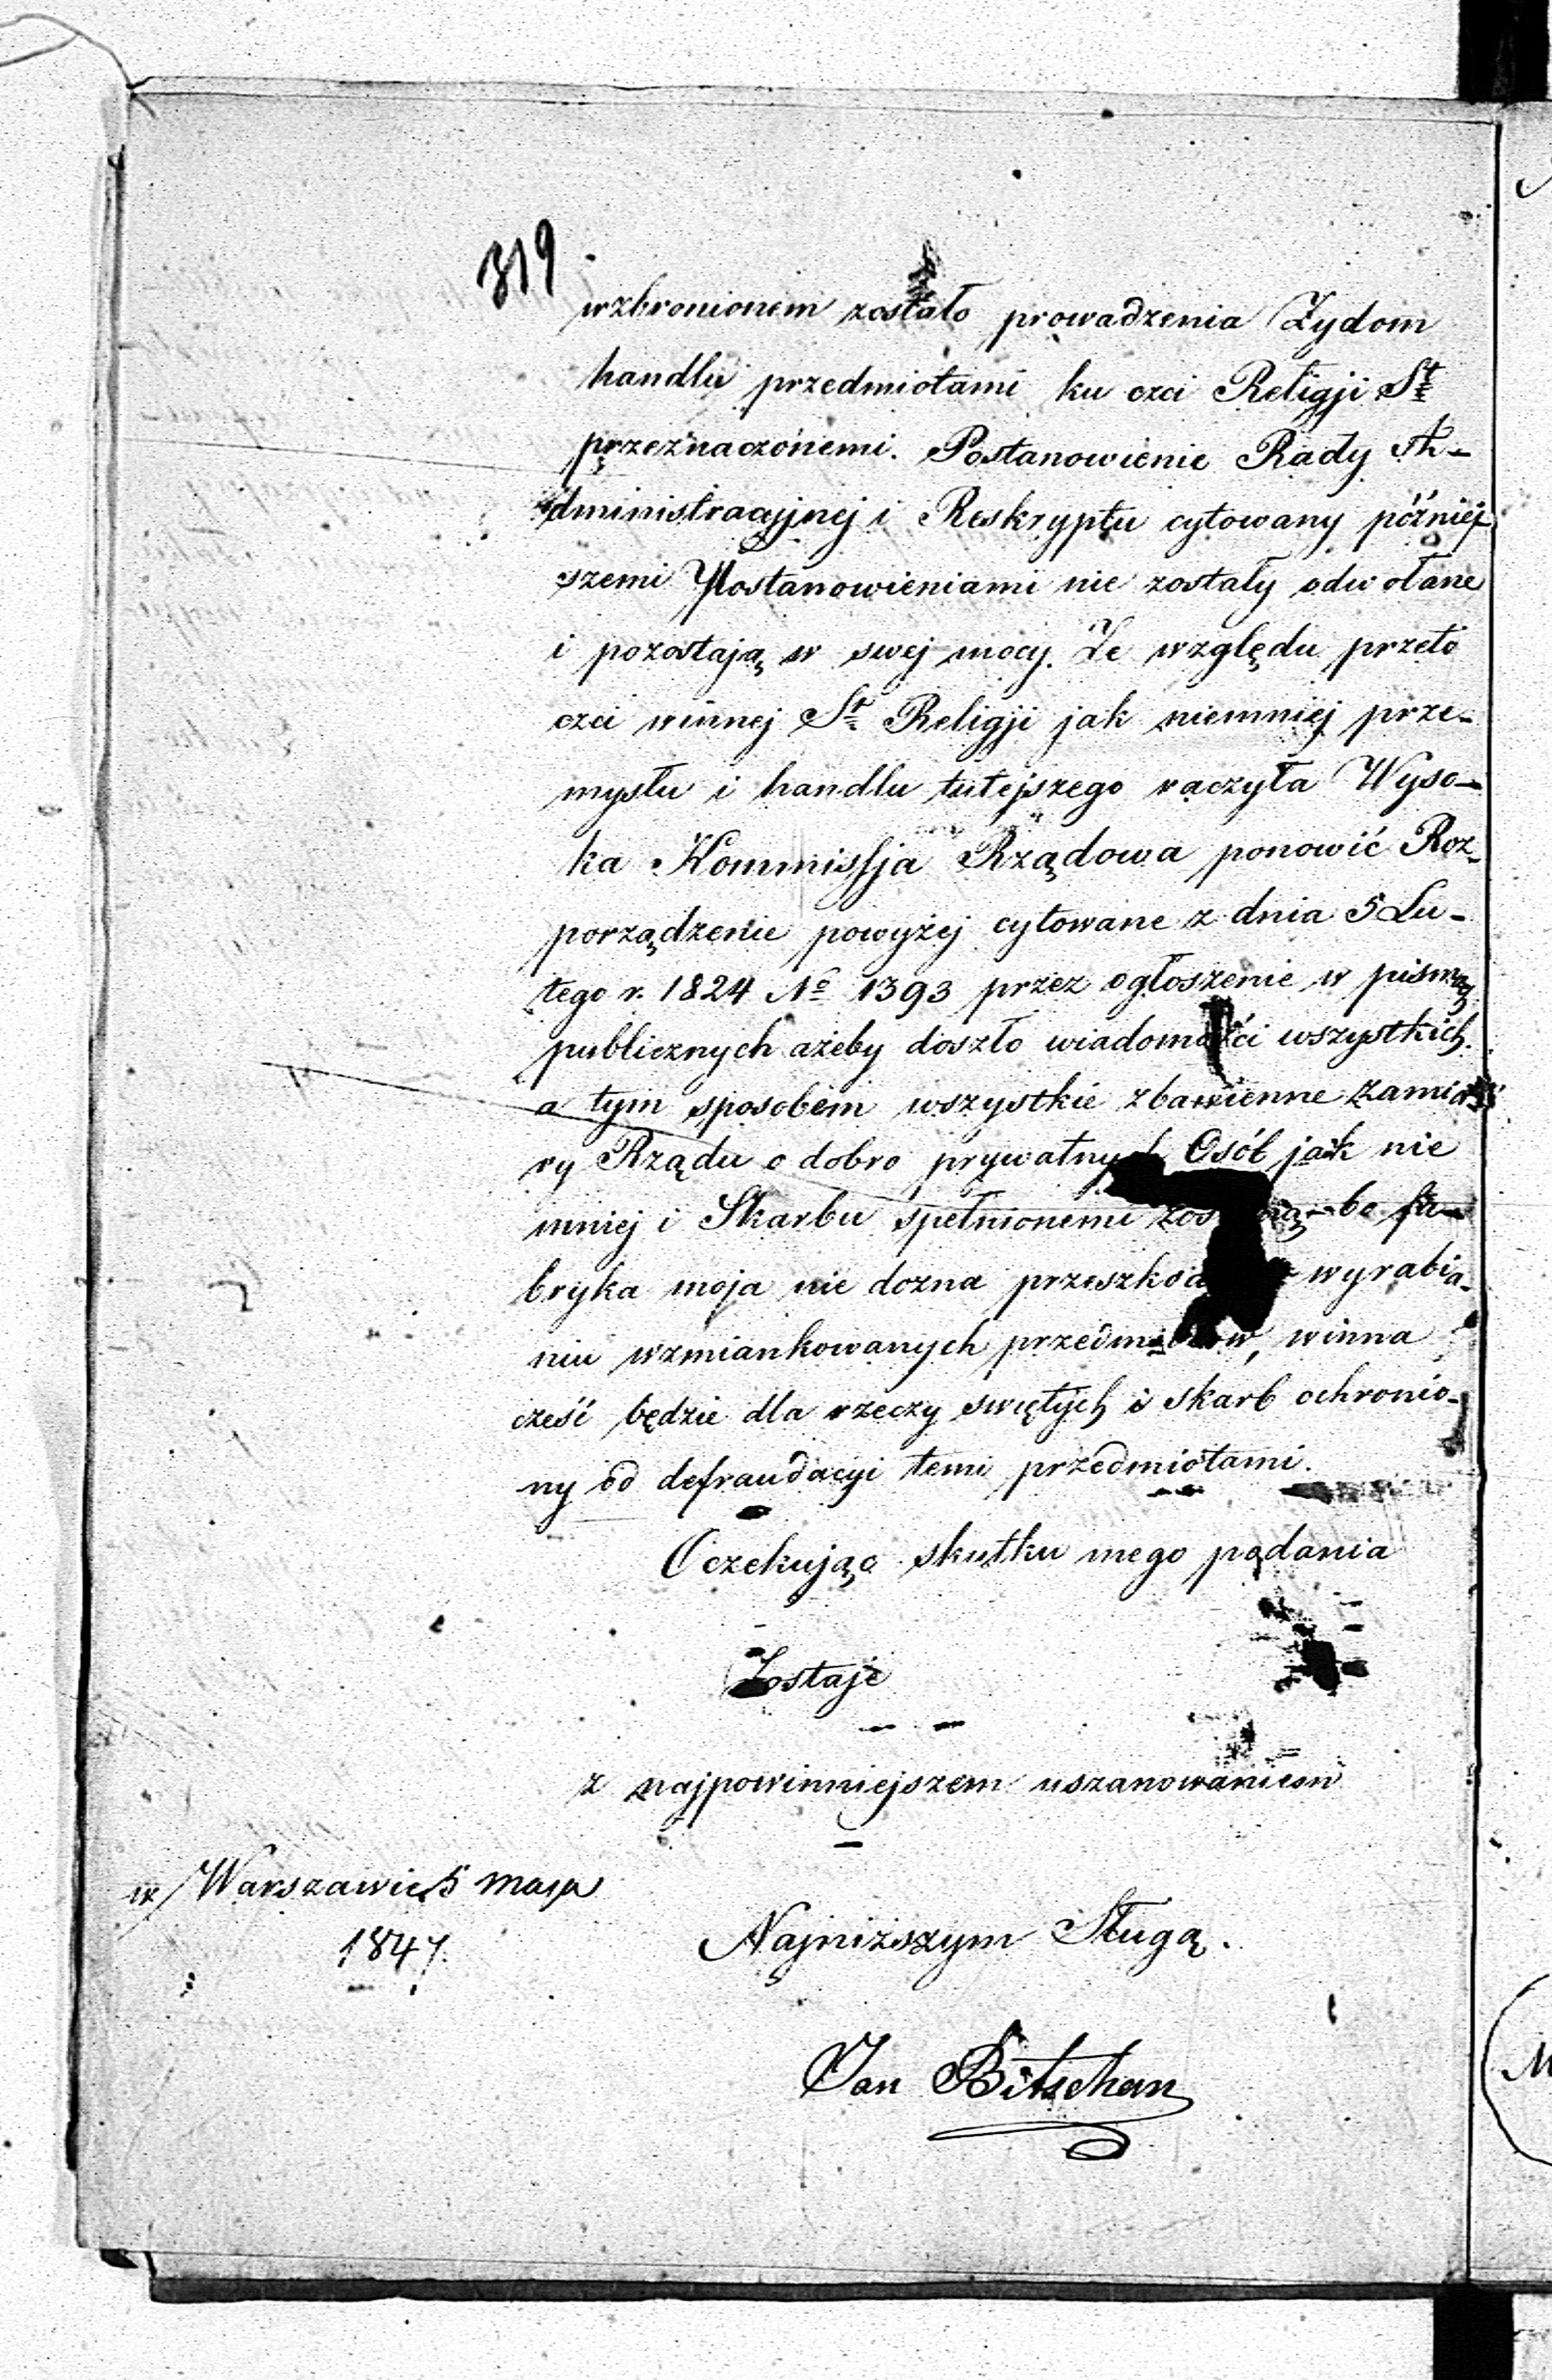 319
wzbronionem zostało prowadzenia Żydom
handlu przedmiotami ku czci Religji St
przeznaczonemi. Postanowienie Rady A-
dministracyjnej i Reskryptu cytowany później-
szemi Postanowieniami nie zostały odwołane
i pozostają w swej mocy. Ze względu przeto
czci winnej St Religji jak niemniej prze-
mysłu i handlu tutejszego raczyła Wyso-
ka Kommissja Rządowa ponowić Roz-
porządzenie powyżej cytowane z dnia 5 Lu-
tego r. 1824 No 1393 przez ogłoszenie w pismach
publicznych ażeby doszło wiadomości wszystkich
a tym sposobem wszystkie zbawienne zamia-
ry Rządu o dobro prywatnych Osób jak nie
mniej i Skarbu spełnionemi zostaną - bo fa-
bryka moja nie dozna wyrabia-
niu wzmiankowanych przedmiotów, winna
cześć będzie dla rzeczy swiętych i skarb ochronio-
ny od defraudacyi temi przedmiotami.
Oczekując skutku mego podania
Zostaje
z najpowinniejszem uszanowaniem
w Warszawie 5 maja
1847.
Najniższym Sługą.
Jan Bitschan